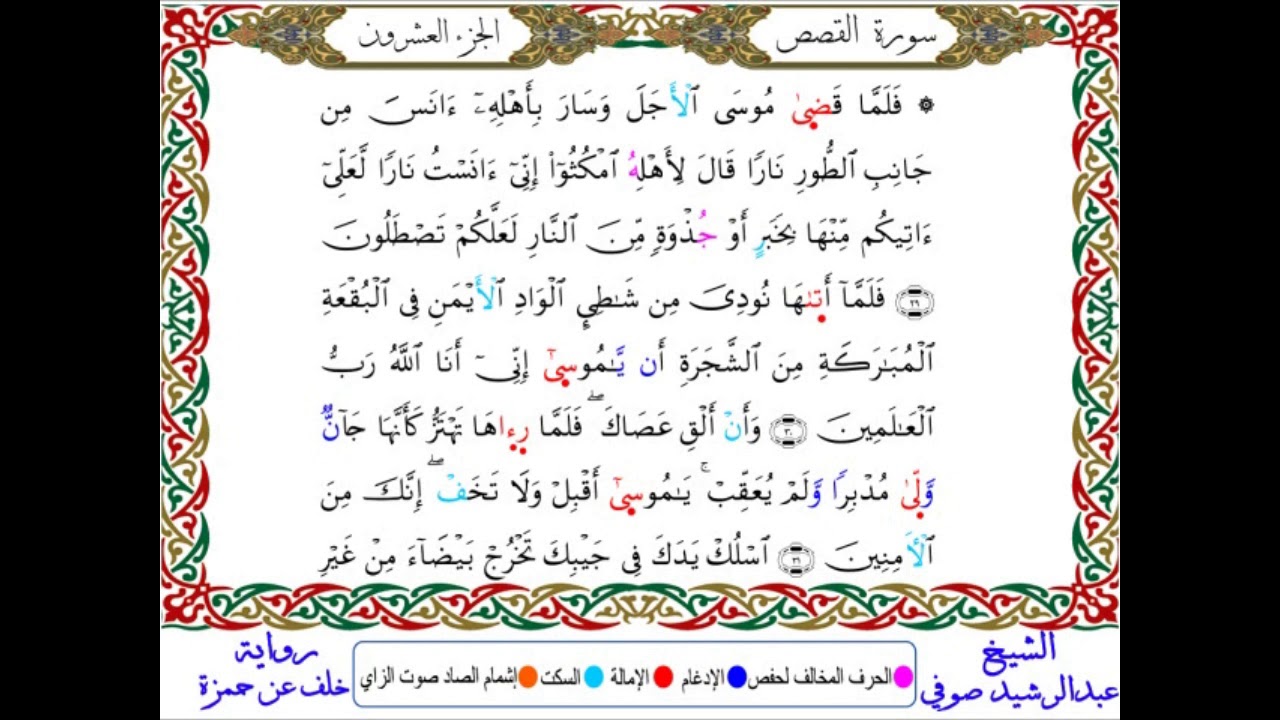 سورة القصص
الجزء العشرون
۞ فَلَمَّا قَضىٰ مُوسَى ٱلْأَجَلَ وَسَارَ بِأَهْلِهِۦٓ ءَانَسَ مِن
جَانِبِ ٱلطُّورِ نَارًا قَالَ لِأَهْلِهُ ٱمْكُثُوٓا۟ إِنِّىٓ ءَانَسْتُ نَارًا لَّعَلِّىٓ
ءَاتِيكُم مِّنْهَا بِخَبَرٍ أَوْ جُذْوَةٍ مِّنَ ٱلنَّارِ لَعَلَّكُمْ تَصْطَلُونَ
٢٩ فَلَمَّآ أَتىٰهَا نُودِىَ مِن شَـٰطِئِ ٱلْوَادِ ٱلْأَيْمَنِ فِى ٱلْبُقْعَةِ
ٱلْمُبَـٰرَكَةِ مِنَ ٱلشَّجَرَةِ أَن يَّـٰمُوسىٰٓ إِنِّىٓ أَنَا ٱللَّهُ رَبُّ
ٱلْعَـٰلَمِينَ ٣٠ وَأَنْ أَلْقِ عَصَاكَ ۖ فَلَمَّا رِءاهَا تَهْتَزُّ كَأَنَّهَا جَآنٌّ
وَّلّىٰ مُدْبِرًا وَّلَمْ يُعَقِّبْ ۚ يَـٰمُوسىٰٓ أَقْبِلْ وَلَا تَخَفْ ۖ إِنَّكَ مِنَ
ٱلْأَمِنِينَ ٣١ ٱسْلُكْ يَدَكَ فِى جَيْبِكَ تَخْرُجْ بَيْضَآءَ مِنْ غَيْرِ
الشيخ
عبدالرشيد صوفي
الحرف المخالف لحفص الإدغام الإمالة السكت إشمام الصاد صوت الزاي
رواية
خلف عن حمزة